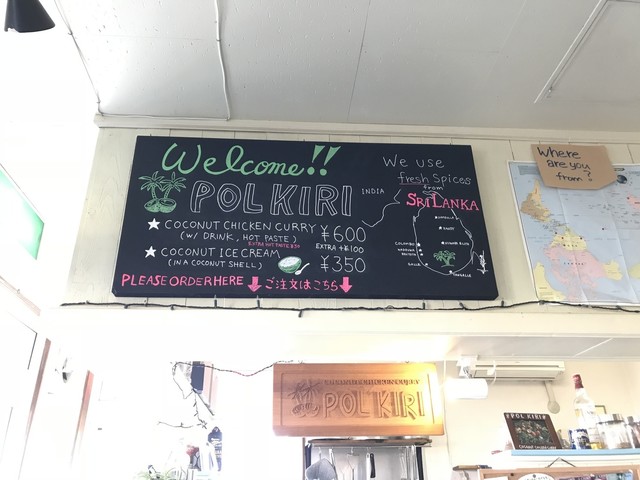 Welcome!!
POL KIRI
COCONUT CHICKEN CURRY ¥600
(W/ DRINK, HOT PASTE) EXTRA +¥100
COCONUT ICE CREAM ¥350
(IN A COCONUT SHELL)
PLEASE ORDER HERE ご注文はこちら
We use
fresh Spices
from
SRI LANKA
INDIA
COLOMBO
GALLE
Where
are you
from?
POL KIRI
POL KIRI